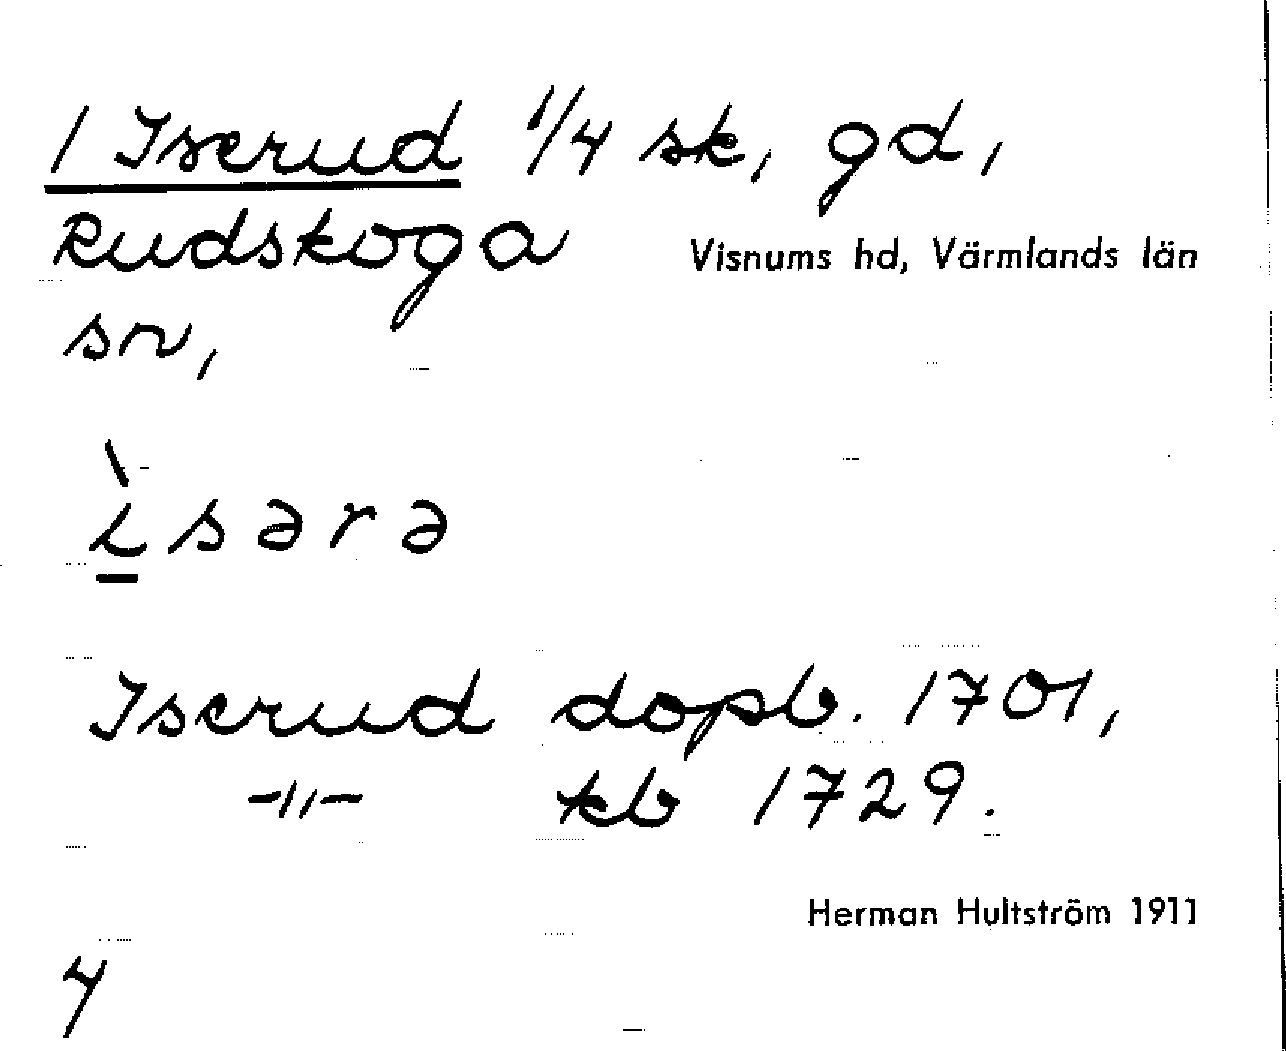 1 Iserud 1/4 sk, gd,
Rudskoga Visnums hd, Värmlands län
sn,
ì̱sərə
Iserud dopb. 1701,
-"- kb 1729.
Herman Hultström 1911
4